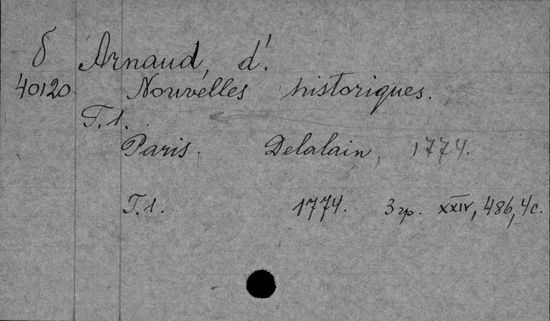 δ Arnaud, d'.
40120 Nouvelles historiques.
T.1.
Paris. Delalain, 1774.
T.1. 1774. 3 гр. XXIV, 486, 4 c.